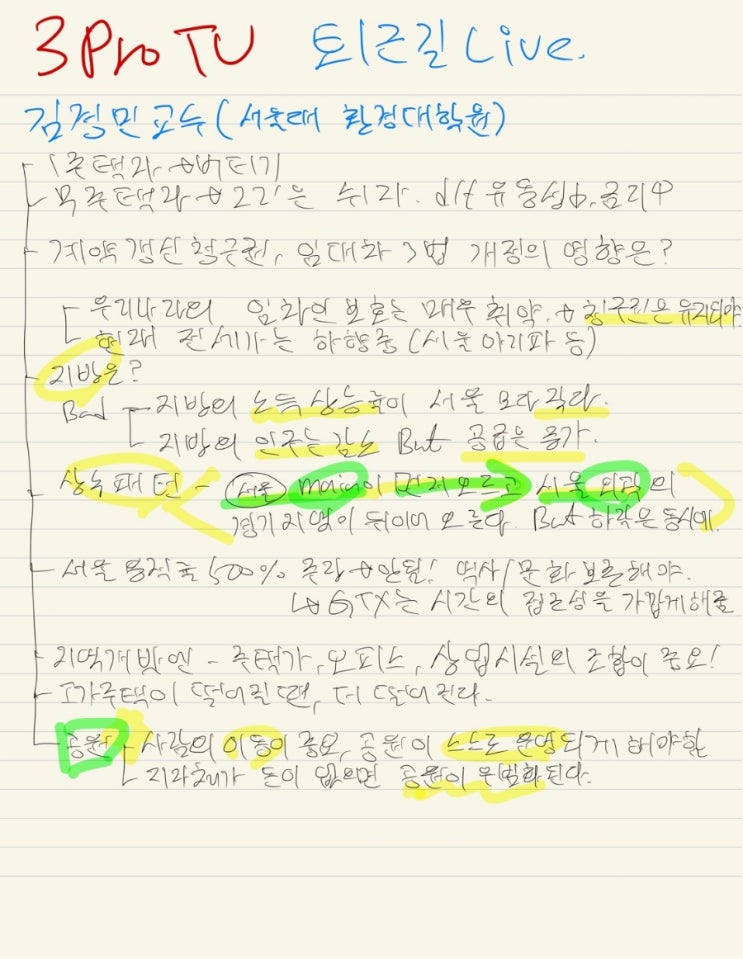 3 Pro TV 퇴근길 Live.
김경민 교수 (서울대 환경대학원)
1주택자 → 버티기
무주택자 → 22'은 쉬라. 유동성↓, 금리↑
계약갱신청구권, 임대차 3법 개정의 영향은?
우리나라의 임차인 보호는 매우 취약. → 청구권은 유지되야
현재 전세가는 하향중 (서울 아리파 등)
지방은?
Bad 지방의 소득 상승률이 서울 보다 작다.
지방의 인구는 감소 But 공급은 증가.
상승패턴 - 서울 main이 먼저오르고 서울 외곽의
경기지역이 뒤이어 오른다. But 하락은 동시에.
서울 용적률 500% 주장 → 안됨! 역사/문화 보존해야.
↳ GTX는 시간의 접근성을 가깝게해줌
지역개발엔 - 주택가, 오피스, 상업시설의 조합이 중요!
고가주택이 떨어질땐, 더 떨어진다.
공원 사람의 이동이 중요, 공원이 스스로 운영되게 해야함
지자체가 돈이 없으면 공원이 우범화된다.